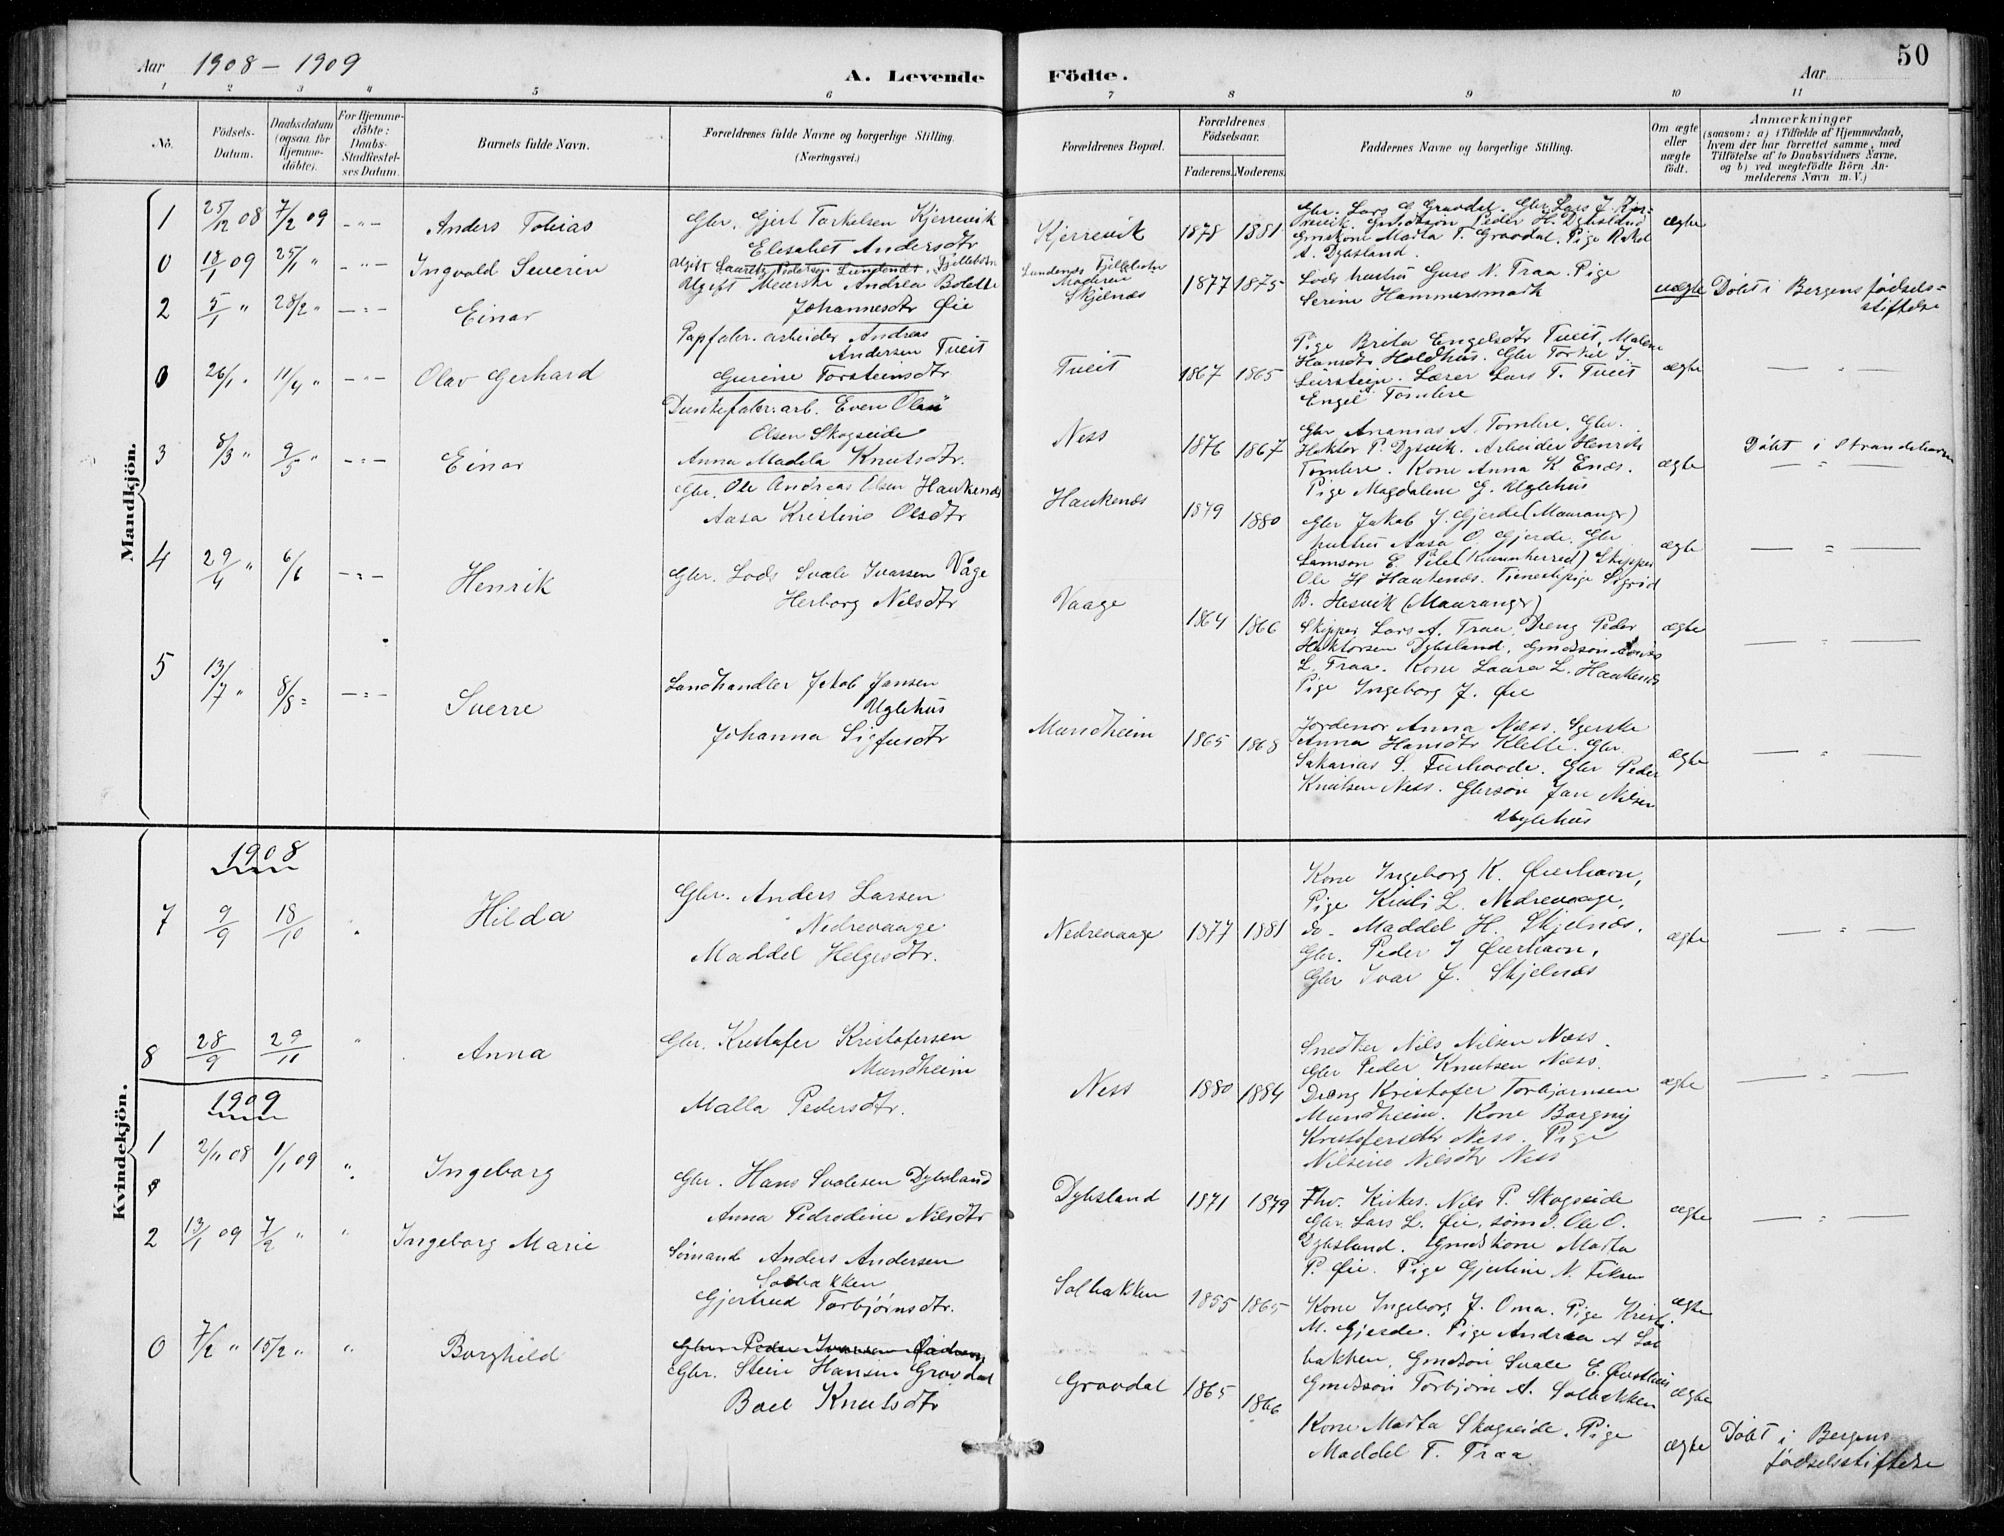 Aar 1908 – 1909
A. Levende Födte.
Aar
50
1 2 3 4 5 6 7 8 9 10 11
No.
Födsels-Datum.
Daabsdatum (ogsaa for Hjemme-döbte).
For Hjemme-döbte: Daabs-Stadfæstel-ses Datum.
Barnets fulde Navn.
Forældrenes fulde Navne og borgerlige Stilling.
(Næringsvei.)
Forældrenes Bopæl.
Forældrenes Födselsaar.
Faderens. Moderens.
Faddernes Navne og borgerlige Stilling.
Om ægte eller uægte födt.
Anmærkninger
(saasom: a) i Tilfælde af Hjemmedaab,
hvem der har forrettet samme, med
Tilföielse af to Daabsvidners Navne,
og b) ved uægtefödte Börn An-
melderens Navn m. V.)
Mandkjön.
1 25/12 08 7/2 09 Anders Tobias
Gbr. Gjert Torkelsen Kjerrevik
Elisabet Andersdtr
Kjerrevik 1878 1881
Gbr. Lars G Gravdal. Gbr. Lars J. Kjer-
revik. Gmdssøn Peder H. Dybsland
Gmskone Marta T. Gravdal. Pige Rakel
A. Dybsland.
ægte
0 18/1 09 25/1 " Ingvald Severin
Ugift Meierske Andrea Bolette
Johannesdtr Øie
Moderen
Skjelnæs
1877 1875
Lods hustru Guro N. Traa. Pige
Serine Hammersmark
uægte
Döbt i Bergens födsels-
stiftelse
2 5/1 " 28/2 " Einar
Papfabr. arbeider Andreas
Andersen Tveit
Gurine Torsteinsdtr
Tveit 1867 1865
Pige Brita Engelsdtr Tveit, Malene
Hansdtr Holdhus. Gbr Torkel J.
Lærer Lars T. Tveit
Engel Tombre
ægte
0 26/1 " 11/4 " Olav Gerhard
arb. Even
Olsen Skogseide
Anna Madela Knutsdtr.
Ness 1876 1867
Gbr Ananias A. Tombre, Gbr.
Haktor P. Dysvik. Arbeider Henrik
Tombre. Kone Anna K Enæs.
Pige Magdalene G. Uglehus
ægte
Döbt i Strandebarm
3 8/3 " 9/5 " Einar
Gbr. Ole Andreas Olsen Haukenæs
Aasa Kristine Olsdtr
Haukenæs 1879 1880
Gbr Jakob J. Gjerde (Mauranger)
hustru Aasa O. Gjerde. Gbr
Samson E. (Kvinnherred) Skipper
Ole H Haukenæs. Tjenestepige Sigrid
B. Hesvik (Mauranger)
ægte
4 29/4 " 6/6 Henrik
Gbr. Lods Svale Ivarsen Våge
Herborg Nilsdtr
Vaage 1864 1866
Skipper Lars A. Traa. Dreng Peder
Haktorsen Dybsland, Gmdssøn
L. Traa. Kone Laura L. Haukenæs
Pige Ingeborg J. Øie
ægte
5 13/7 " 8/8 Sverre
Landhandler Jakob Jansen
Uglehus
Johanna Sigfusdtr
Mundheim 1865 1868
Jordemor Anna Næss. Syerske
Anna Hansdtr Klette. Gbr.
Sakarias S. Furhovde. Gbr Peder
Knutsen Ness. Gbrsøn Jan Nilsen
Uglehus
ægte
Kvindekjön.
1908
7 9/9 18/10 Hilda
Gbr. Anders Larsen
Nedrevaage
Maddel Helgesdtr.
Nedrevaage 1877 1881
Kone Ingeborg K. Øierhavn,
Pige Kirsti L. Nedrevaage,
do - Maddel H. Skjelnæs.
Gbr. Peder I Øierhavn,
Gbr Ivar J. Skjelnæs
ægte
8 28/9 29/11 Anna
Gbr. Kristofer Kristofersen
Mundheim
Malla Pedersdtr.
Ness 1880 1884
Snedker Nils Nilsen Næss.
Gbr Peder Knutsen Næss.
Dreng Kristofer Torbjørnsen
Mundheim. Kone Borgny
Kristofersdtr Ness. Pige
Nilsine Nilsdtr Ness
ægte
1909
1 2/11 08 1/1 09 Ingeborg
Gbr. Hans Svalesen Dybsland
Anna Pedrodine Nilsdtr
Dybsland 1871 1879
Fhv. Kirkes. Nils P. Skogseide
Gbr. Lars L. Øie, sømd. Ole O.
Dybsland. Gmdskone Marta
P. Øie. Pige Gjertine N. Tiksen
ægte
2 13/1 09 7/2 " Ingeborg Marie
Sømand Anders Andersen
Solbakken
Gjertrud Torbjørnsdtr.
Solbakken 1855 1865
Kone Ingeborg J. Oma. Pige Kristi
M. Gjerde. Pige Andrea A Sol
bakken, Gmdssøn Svale E.
Gmdssøn Torbjørn A. Solbakken
ægte
0 7/2 " 15/2 " Borghild
Gbr. Stein Hansen Gravdal
Boel Knutsdtr
Gravdal 1865 1866
Kone Marta Skogseide. Pige
Maddel T. Traa
ægte
ægte
Döbt i Bergens
födselsstiftelse